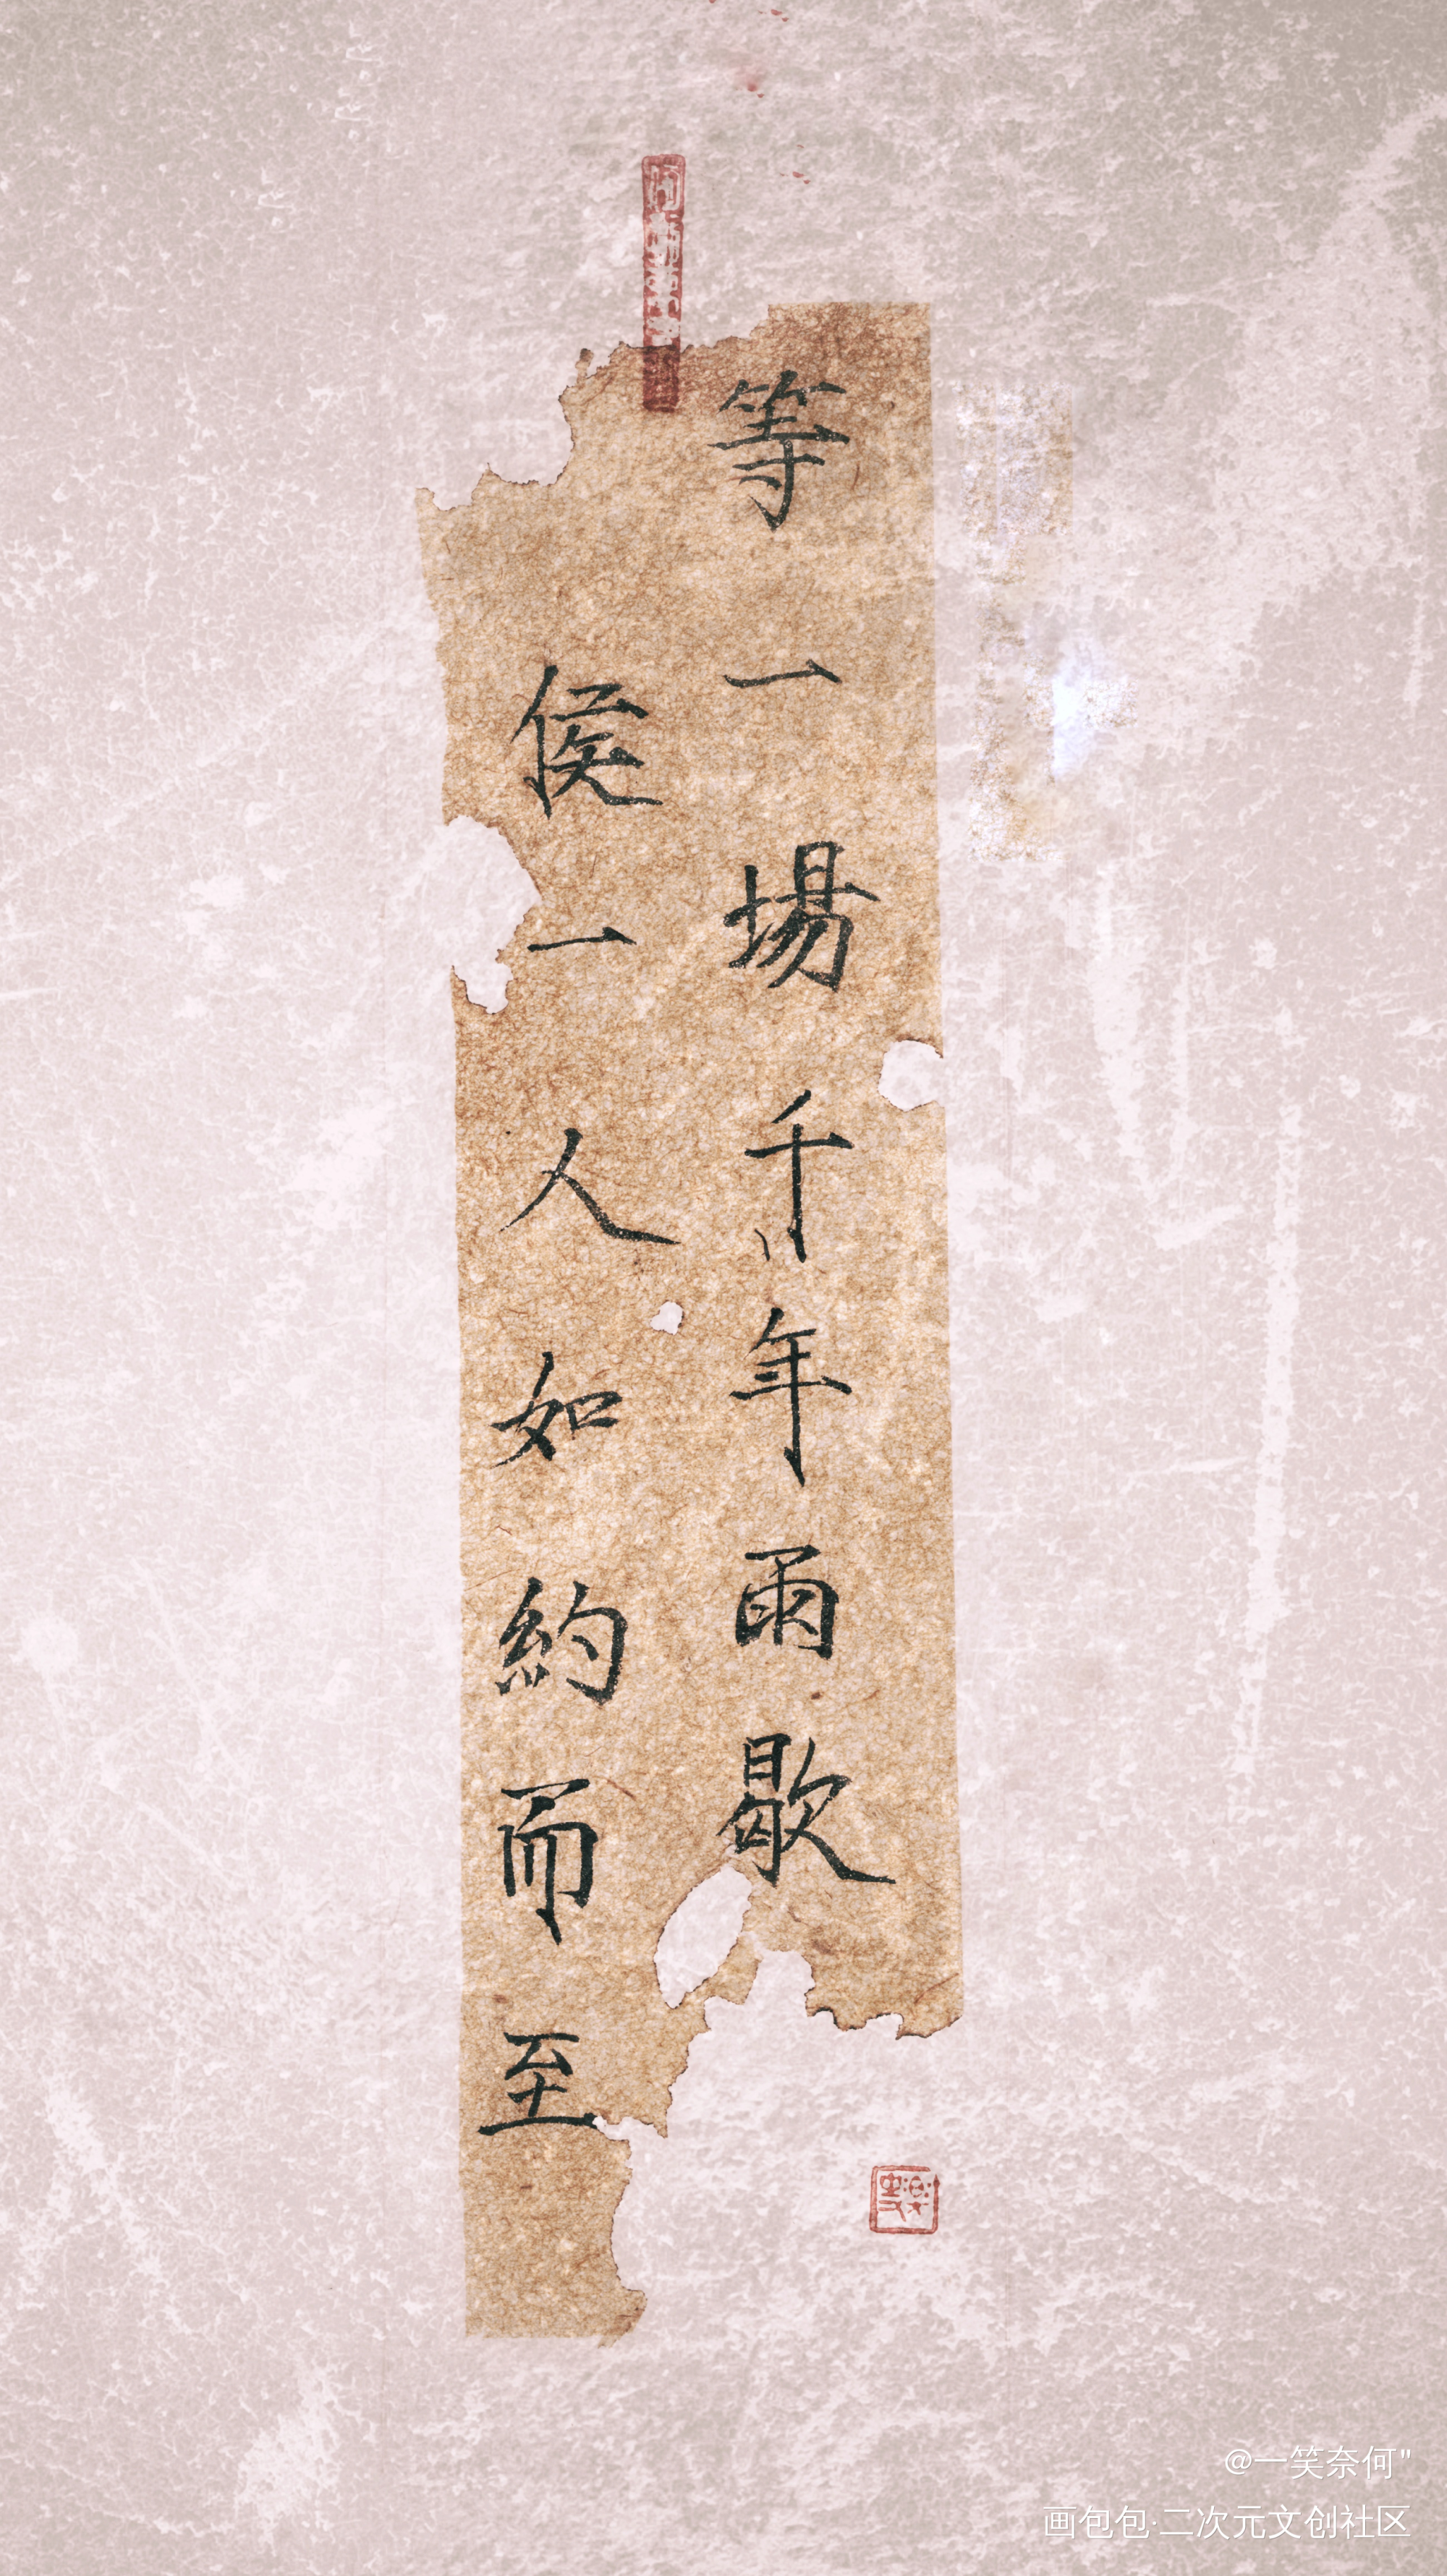 等一場千年雨歇
侯一人如約而至
@一笑奈何"
画包包·二次元文创社区